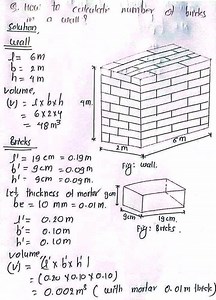 Q. How to calculate number of bricks
in a wall?
Solution,
wall
l = 6m
b = 2m
h = 4m
Volume,
(V) = l x b x h
= 6x2x4
= 48m³
4m.
2m
6m
Fig: wall.
Bricks
l' = 19cm = 0.19m
b' = 9cm = 0.09m
h' = 9cm = 0.09m
Let thickness of mortar
be = 10 mm = 0.01m.
9cm
9cm
19cm.
Fig: Bricks.
l' = 0.20m
b' = 0.10m
h' = 0.10m
Volume
(V) = l' x b' x h'
= (0.20 x 0.10 x 0.10)
= 0.002m³ (with mortar 0.01m thick)